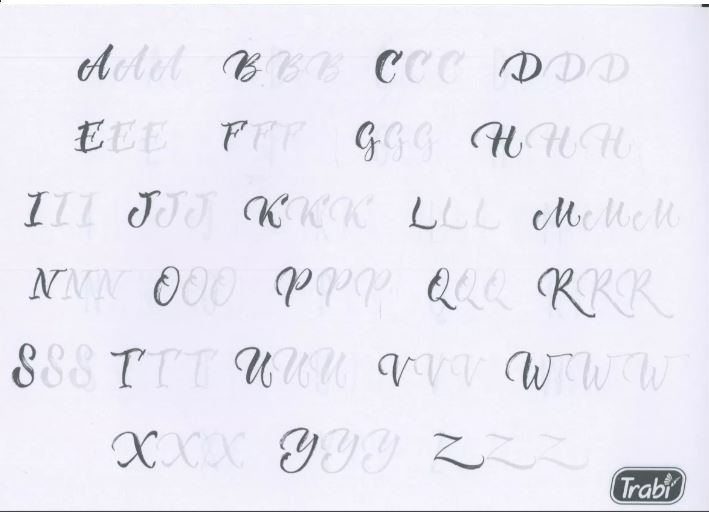 A A A B B B C C C D D D
E E E F F F G G G H H H
I I I J J J K K K L L L M M M
N N N O O O P P P Q Q Q R R R
S S S T T T U U U V V V W W W
X X X Y Y Y Z Z Z
Trabi